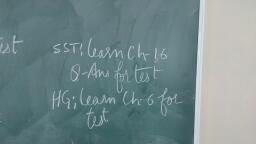 ist
SST; learn Ch 16
Q-Ans for test
HG; learn Ch 6 for
test